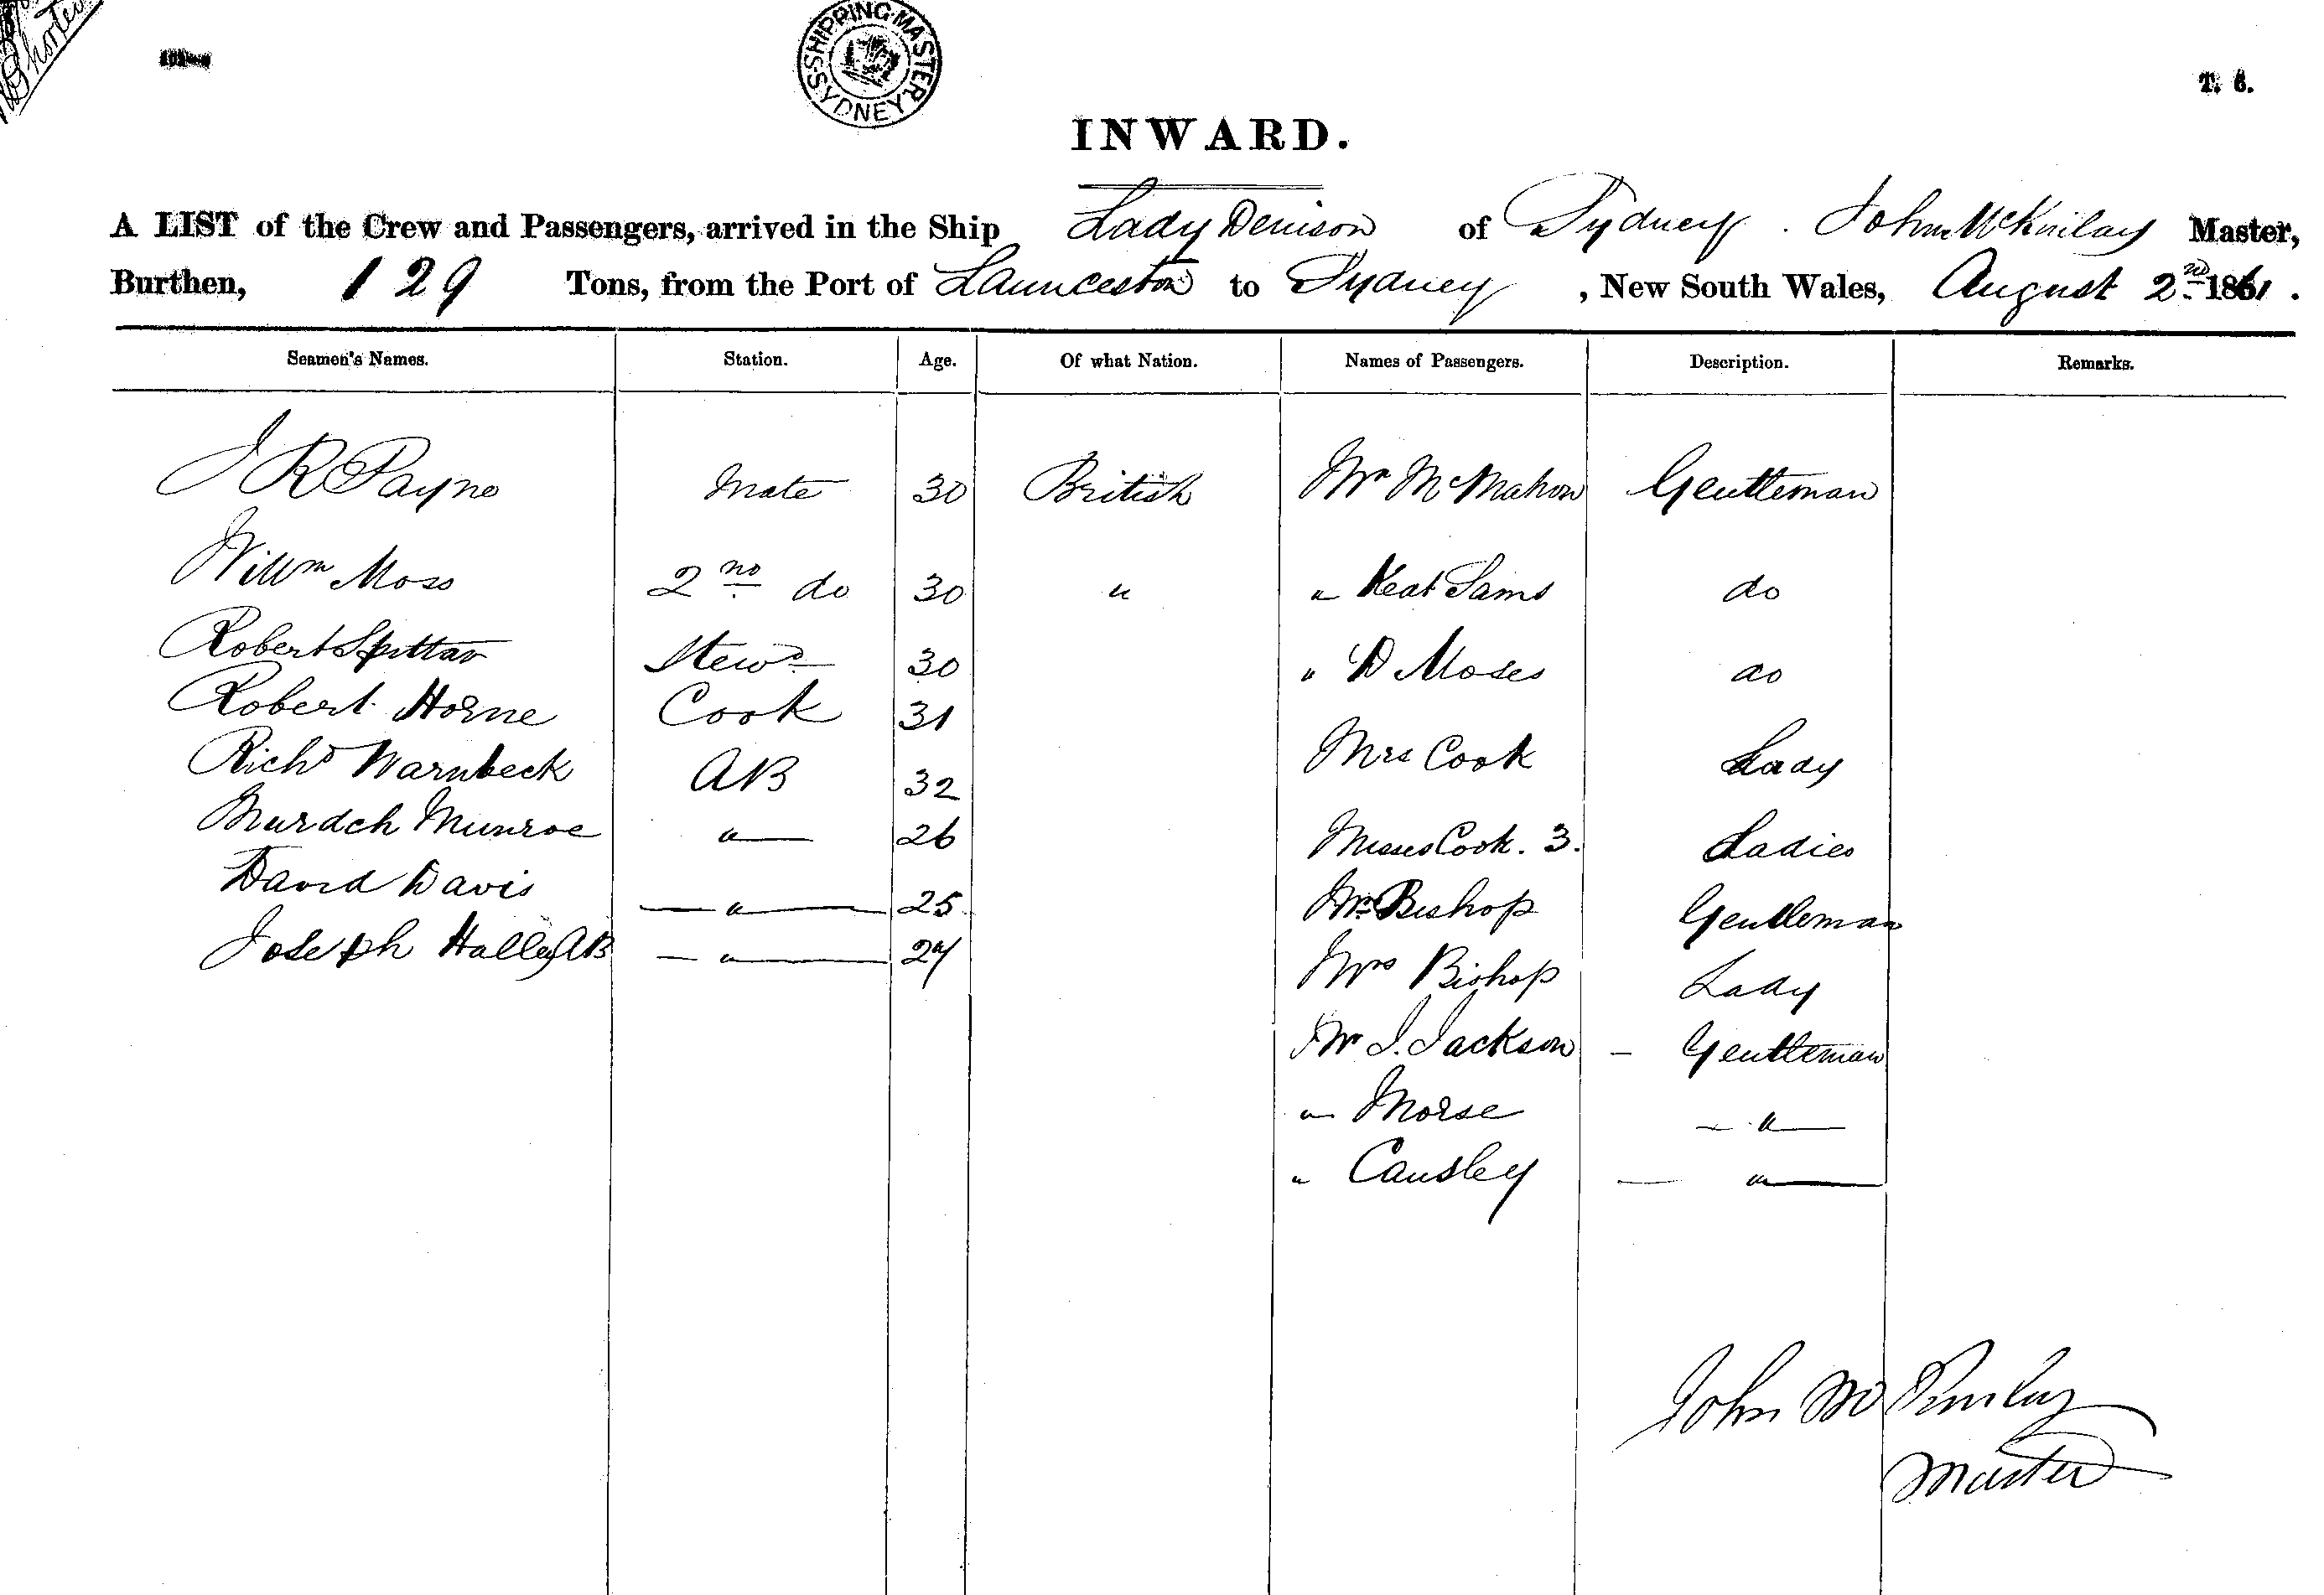 SHIPPING MASTER SYDNEY
T. 6.
INWARD.
A LIST of the Crew and Passengers, arrived in the Ship Lady Denison of Sydney. John McKinlay Master,
Burthen, 129 Tons, from the Port of Launceston to Sydney, New South Wales, August 2nd 1861.
Seamen's Names. Station. Age. Of what Nation. Names of Passengers. Description. Remarks.
J R Payne Mate 30 British Mr McMahon Gentleman
Willm Moss 2nd do 30 " " Keat Sams do
Robert Stew 30 " D Moses do
Robert Horne Cook 31
Richd Warnbeck AB 32 Mrs Cook Lady
Murdch Munroe " 26 Misses Cook. 3. Ladies
David Davis — " — 25 Mr Bishop Gentleman
Joseph Halley AB — " — 27 Mrs Bishop Lady
Mr J. Jackson — Gentleman
" Morse — " —
" Causley — " —
John McKinlay
Master